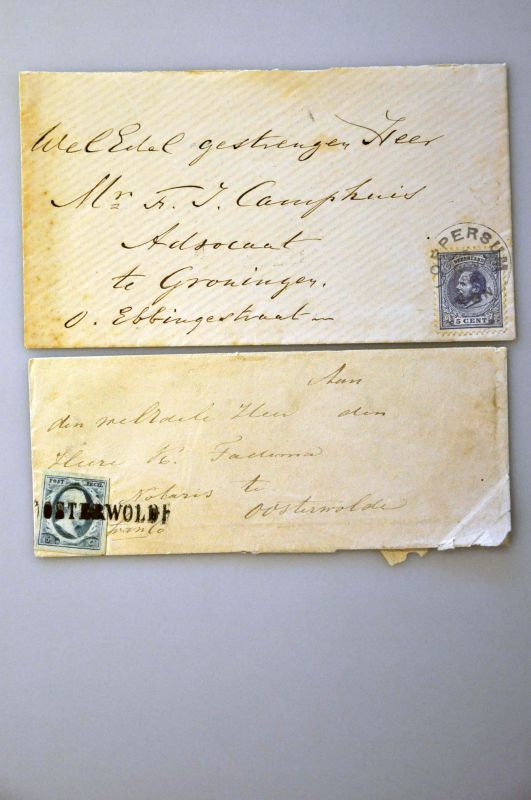 WelEdel gestrengen Heer
Mr F. J. Camphuis
Advocaat
te Groningen.
O. Ebbingestraat
OPPERSUM
NEDERLAND
5 CENT
Aan
den welEdele Heer den
Heere K. Tadema
Notaris te
Oosterwolde
franco
POST ZEGEL
OOSTERWOLDE